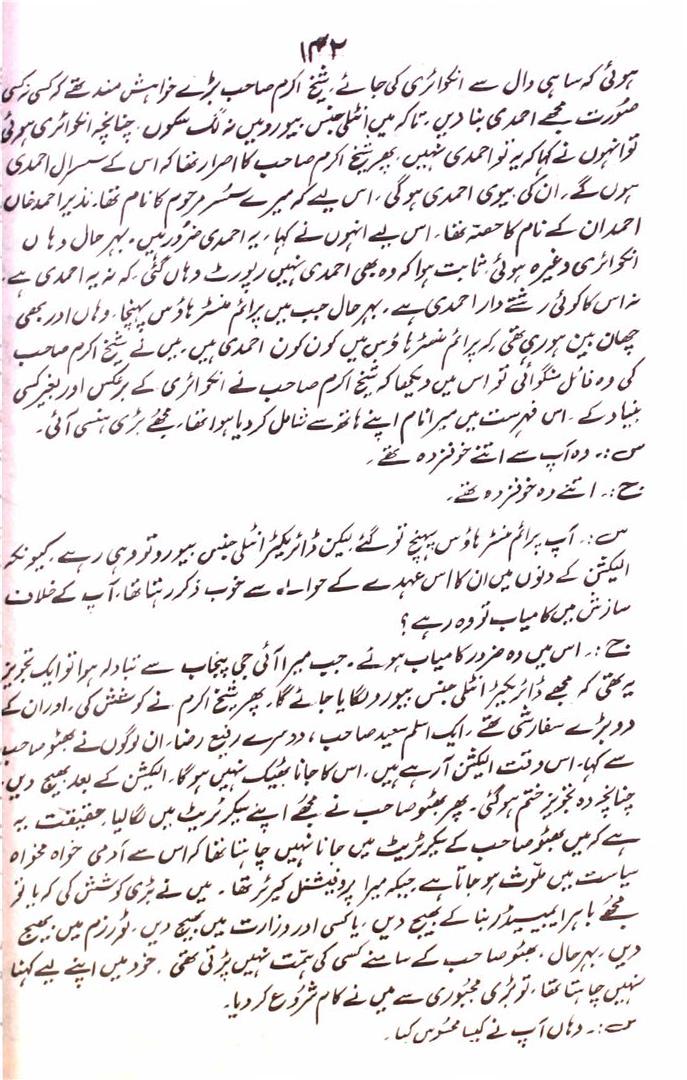 ۱۴۲
ہوئی کہ ساہی وال سے انکوائری کی جائے، شیخ اکرم صاحب بڑے خواہش مند تھے کہ کسی نہ کسی
صورت مجھے احمدی بنا دیں۔ تاکہ میں انٹیلی جنس بیورو میں نہ لگ سکوں۔ چنانچہ انکوائری ہوئی
تو انہوں نے کہا کہ یہ تو احمدی نہیں۔ پھر شیخ اکرم صاحب کا اصرار تھا کہ اس کے سسرال احمدی
ہوں گے۔ ان کی بیوی احمدی ہو گی۔ اس لیے کہ میرے سسُر مرحوم کا نام تھا۔ نذیر احمد خان
احمد ان کے نام کا حصہ تھا۔ اس لیے انہوں نے کہا، یہ احمدی ضرور ہیں۔ بہر حال وہاں
انکوائری وغیرہ ہوئی، ثابت ہوا کہ وہ بھی احمدی نہیں رپورٹ وہاں گئی، کہ نہ یہ احمدی ہے،
نہ اس کا کوئی رشتے دار احمدی ہے۔ بہر حال جب میں پرائم منسٹر ہاؤس پہنچا۔ وہاں اور بھی
چھان بین ہو رہی تھی کہ پرائم منسٹر ہاؤس میں کون کون احمدی ہیں۔ میں نے شیخ اکرم صاحب
کی وہ فائل منگوائی تو اس میں دیکھا کہ شیخ اکرم صاحب نے انکوائری کے برعکس اور بغیر کسی
بنیاد کے۔ اس فہرست میں میرا نام اپنے ہاتھ سے شامل کر دیا ہوا تھا۔ مجھے بڑی ہنسی آئی۔
س:۔ وہ آپ سے اتنے خوفزدہ تھے۔
ج:۔ اتنے وہ خوفزدہ تھے۔
س:۔ آپ پرائم منسٹر ہاؤس پہنچ تو گئے لیکن ڈائریکٹر انٹیلی جنس بیورو تو وہی رہے۔ کیونکہ
الیکشن کے دنوں میں ان کا اس عہدے کے حوالے سے خوب ذکر رہتا تھا، آپ کے خلاف
سازش میں کامیاب تو وہ رہے؟
ج:۔ اس میں وہ ضرور کامیاب ہوئے۔ جب میرا آئی جی پنجاب سے تبادلہ ہوا تو ایک تجویز
یہ تھی کہ مجھے ڈائریکٹر انٹیلی جنس بیورو لگایا جائے گا۔ پھر شیخ اکرم نے کوشش کی، اور ان کے
دو بڑے سفارشی تھے۔ ایک اسلم سعید صاحب، دوسرے رفیع رضا۔ ان لوگوں نے بھٹو صاحب
سے کہا۔ اس وقت الیکشن آ رہے ہیں۔ اس کا جانا ٹھیک نہیں ہو گا۔ الیکشن کے بعد بھیج دیں۔
چنانچہ وہ تجویز ختم ہو گئی۔ پھر بھٹو صاحب نے مجھے اپنے سیکرٹریٹ میں لگا لیا۔ حقیقت یہ
ہے کہ میں بھٹو صاحب کے سیکرٹریٹ میں جانا نہیں چاہتا تھا کہ اس سے آدمی خواہ مخواہ
سیاست میں ملوث ہو جاتا ہے جبکہ میرا پروفیشنل کیرئر تھا۔ میں نے بڑی کوشش کی کہ یا تو
مجھے باہر ایمبیسیڈر بنا کے بھیج دیں۔ یا کسی اور وزارت میں بھیج دیں۔ ٹورزم میں بھیج
دیں۔ بہر حال۔ بھٹو صاحب کے سامنے کسی کی ہمّت نہیں پڑتی تھی۔ خود میں اپنے لیے کہنا
نہیں چاہتا تھا، تو بڑی مجبوری سے میں نے کام شروع کر دیا۔
س:۔ وہاں آپ نے کیسا محسوس کیا۔